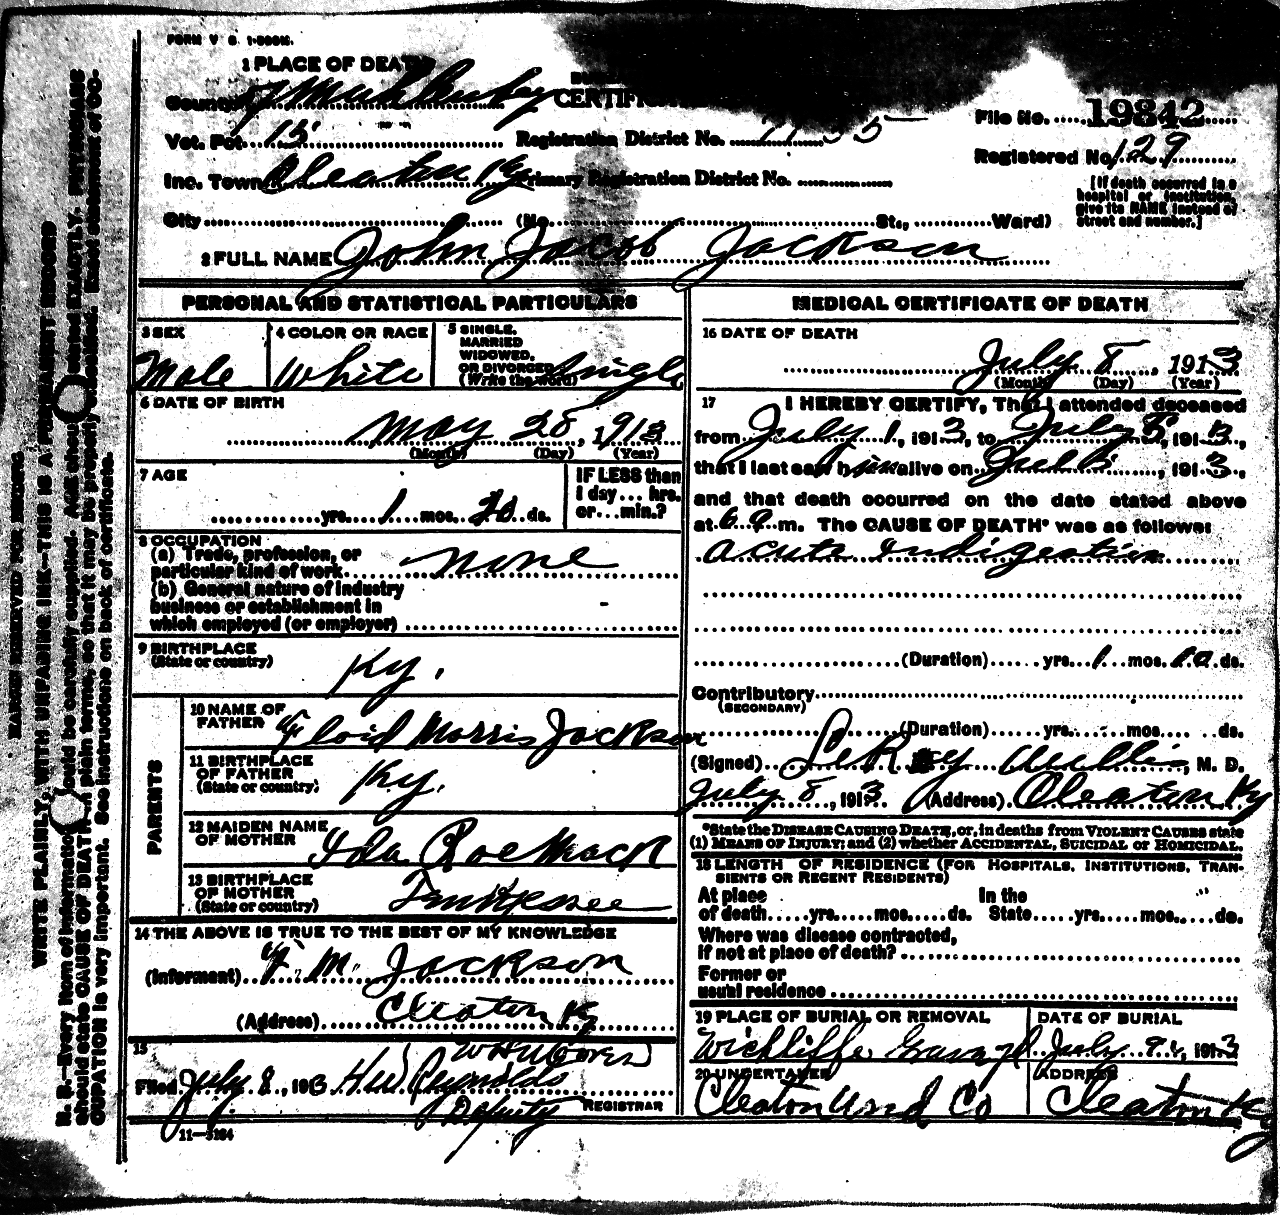 FORM V S. 1-
1 PLACE OF DEATH
County of Muhlenberg
CERTIFIC
File No. 19842
Vot. Pct. 15 Registration District No. 1135
Registered No. 129
Inc. Town Cleaton Ky Primary Registration District No.
[If death occurred in a
hospital or institution,
give its NAME instead of
street and number.]
City (No. St., Ward)
2 FULL NAME John Jacob Jackson
PERSONAL AND STATISTICAL PARTICULARS
3 SEX
Male
4 COLOR OR RACE
White
5 SINGLE,
MARRIED
WIDOWED,
OR DIVORCED
(Write the word) Single
6 DATE OF BIRTH
May 28, 1913
(Month) (Day) (Year)
7 AGE
yrs. 1 mos. ds.
IF LESS than
1 day... hrs.
or...min.?
8 OCCUPATION
(a) Trade, profession, or
particular kind of work. none
(b) General nature of industry
business or establishment in
which employed (or employer)
9 BIRTHPLACE
(State or country)
Ky.
PARENTS
10 NAME OF
FATHER Floid Morris Jackson
11 BIRTHPLACE
OF FATHER
(State or country)
Ky.
12 MAIDEN NAME
OF MOTHER Ida
13 BIRTHPLACE
OF MOTHER
(State or country) Tennessee
14 THE ABOVE IS TRUE TO THE BEST OF MY KNOWLEDGE
(Informant) F. M. Jackson
(Address) Cleaton Ky
15
Filed July 8, 1913 H W Reynolds
Deputy REGISTRAR
11—5184
MEDICAL CERTIFICATE OF DEATH
16 DATE OF DEATH
July 8, 1913
(Month) (Day) (Year)
17 I HEREBY CERTIFY, That I attended deceased
from July 1, 1913, to July 8, 1913,
that I last saw him alive on Jul 8, 1913,
and that death occurred on the date stated above
at 6 a m. The CAUSE OF DEATH* was as follows:
acute indigestion
(Duration) yrs. 1 mos. 10 ds.
Contributory
(SECONDARY)
(Duration) yrs. mos. ds.
(Signed) M. D.
July 8, 1913 (Address) Cleaton Ky
*State the DISEASE CAUSING DEATH, or, in deaths from VIOLENT CAUSES state
(1) MEANS OF INJURY; and (2) whether ACCIDENTAL, SUICIDAL OR HOMICIDAL.
18 LENGTH OF RESIDENCE (FOR HOSPITALS, INSTITUTIONS, TRAN-
SIENTS OR RECENT RESIDENTS)
At place In the
of death.....yrs.....mos.....ds. State.....yrs.....mos.....ds.
Where was disease contracted,
if not at place of death?
Former or
usual residence
19 PLACE OF BURIAL OR REMOVAL
Wickliffe Graveyd
DATE OF BURIAL
July 9, 1913
20 UNDERTAKER
Cleaton Und Co
ADDRESS
Cleaton Ky
MARGIN RESERVED FOR BINDING
WRITE PLAINLY, WITH UNFADING INK—THIS IS A PERMANENT RECORD
N. B.—Every item of information should be carefully supplied. AGE should be stated EXACTLY. PHYSICIANS
should state CAUSE OF DEATH in plain terms, so that it may be properly classified. Exact statement of OC-
CUPATION is very important. See instructions on back of certificate.